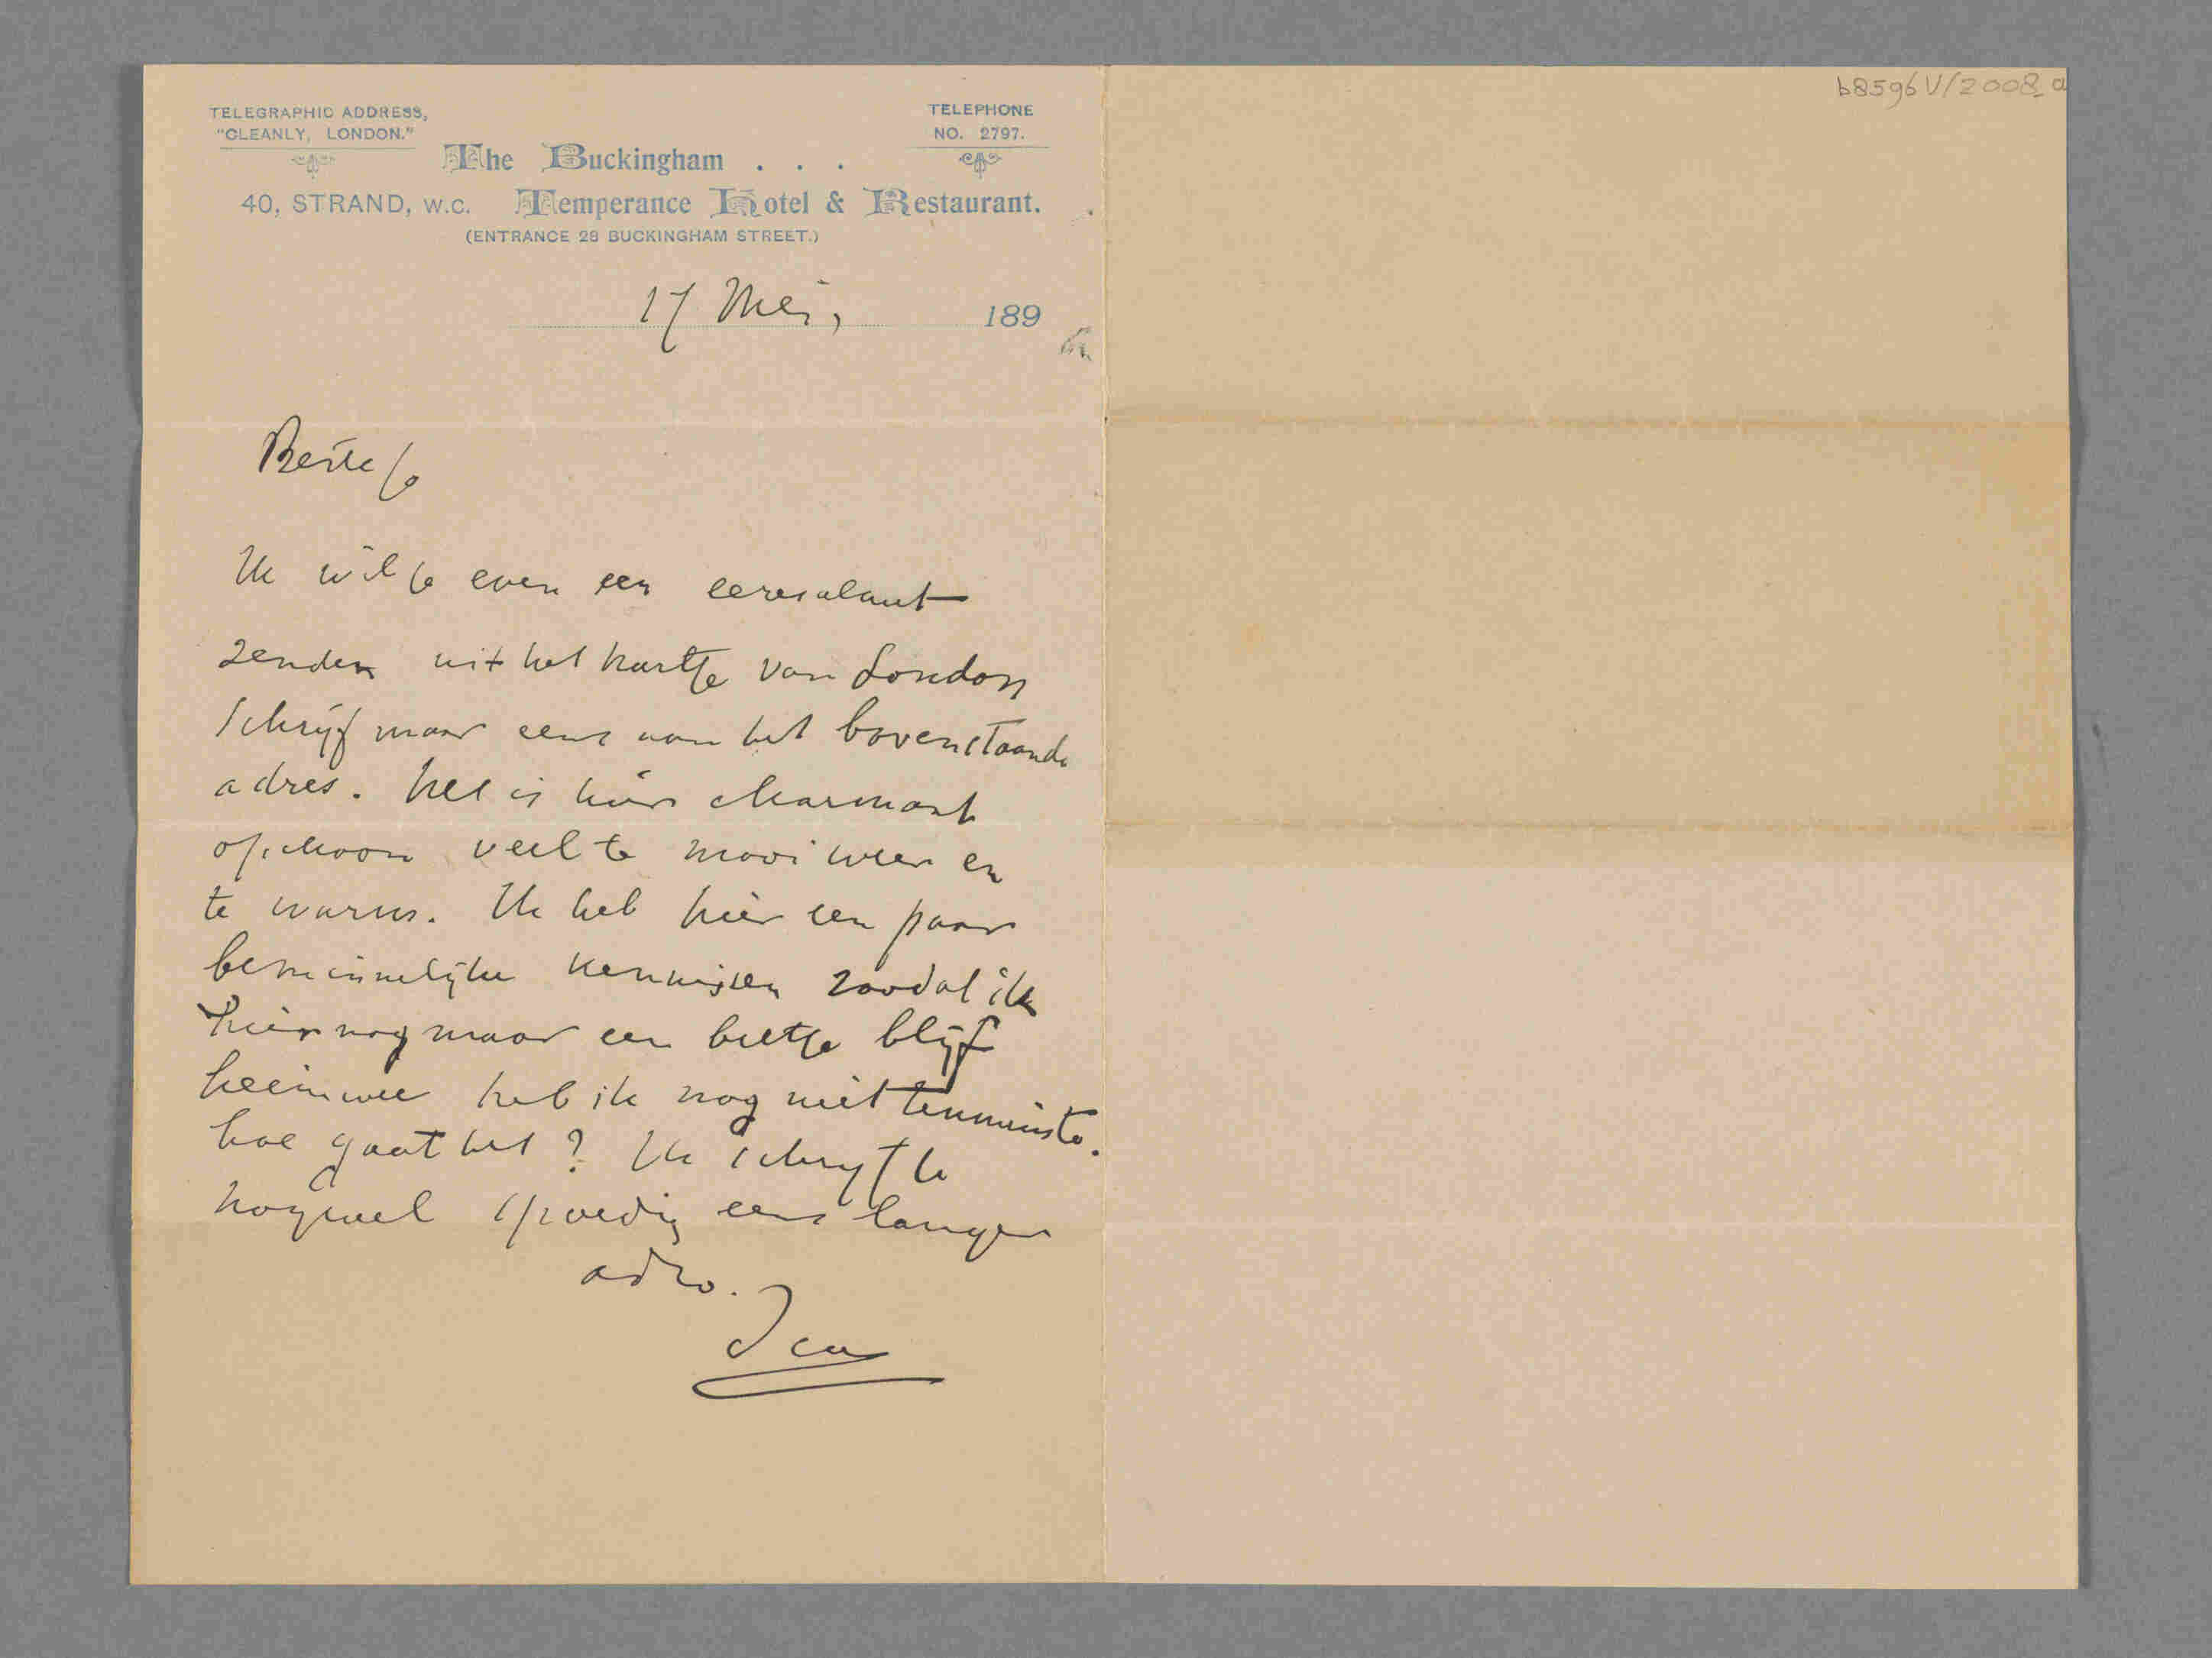 b8596 V/2008 a
TELEGRAPHIC ADDRESS,
"CLEANLY, LONDON."
TELEPHONE
NO. 2797.
The Buckingham . . .
40, STRAND, W.C. Temperance Hotel & Restaurant.
(ENTRANCE 28 BUCKINGHAM STREET.)
17 Mei, 189
Beste Jo
Ik wil je even een eeresaluut
zenden uit het hartje van London
schrijf maar eens aan het bovenstaande
adres. het is hier charmant
ofschoon veel te mooi weer en
te warm. Ik heb hier een paar
beminnelijke kennissen zoodat ik
hier nog maar een beetje blijf
heimwee heb ik nog niet tenminste.
hoe gaat het? Ik schrijf je
nog wel spoedig eens langer
adio.
Isaac